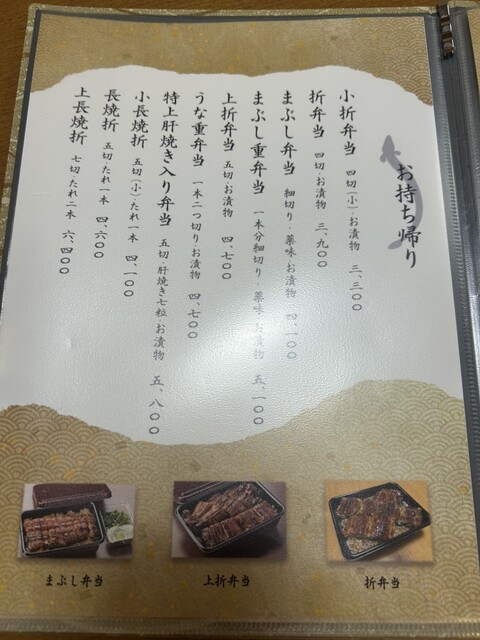 お持ち帰り
小折弁当 四切(小)・お漬物 三、三〇〇
折弁当 四切・お漬物 三、九〇〇
まぶし弁当 細切り・薬味・お漬物 四、一〇〇
まぶし重弁当 一本分細切り・薬味・お漬物 五、一〇〇
上折弁当 五切・お漬物 四、七〇〇
うな重弁当 一本二つ切りお漬物 四、七〇〇
特上肝焼き入り弁当 五切・肝焼き七粒・お漬物 五、八〇〇
小長焼折 五切(小)・たれ一本 四、一〇〇
長焼折 五切・たれ一本 四、六〇〇
上長焼折 七切・たれ二本 六、四〇〇
まぶし弁当
上折弁当
折弁当